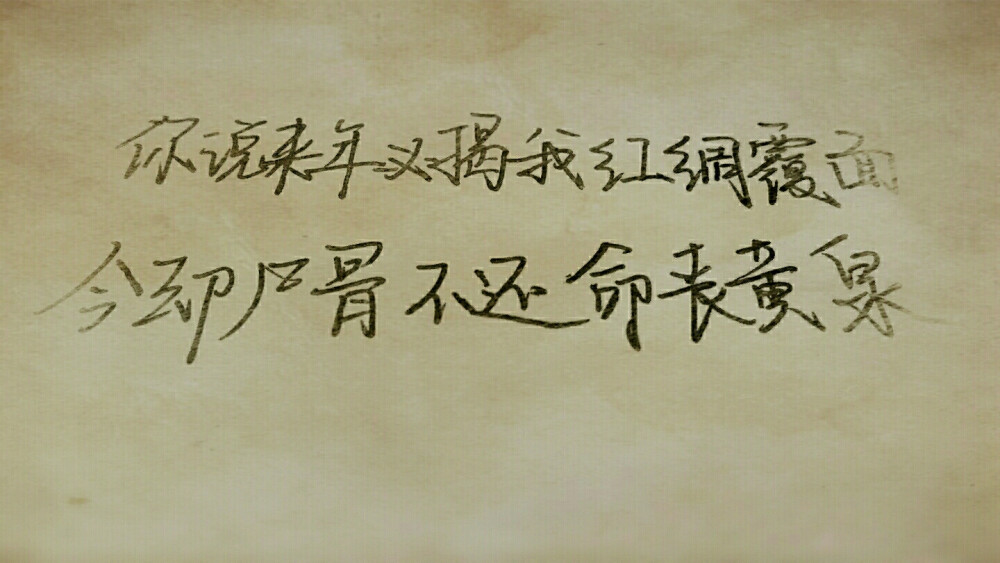 你说来年必揭我红绸覆面
今却尸骨不还命丧黄泉